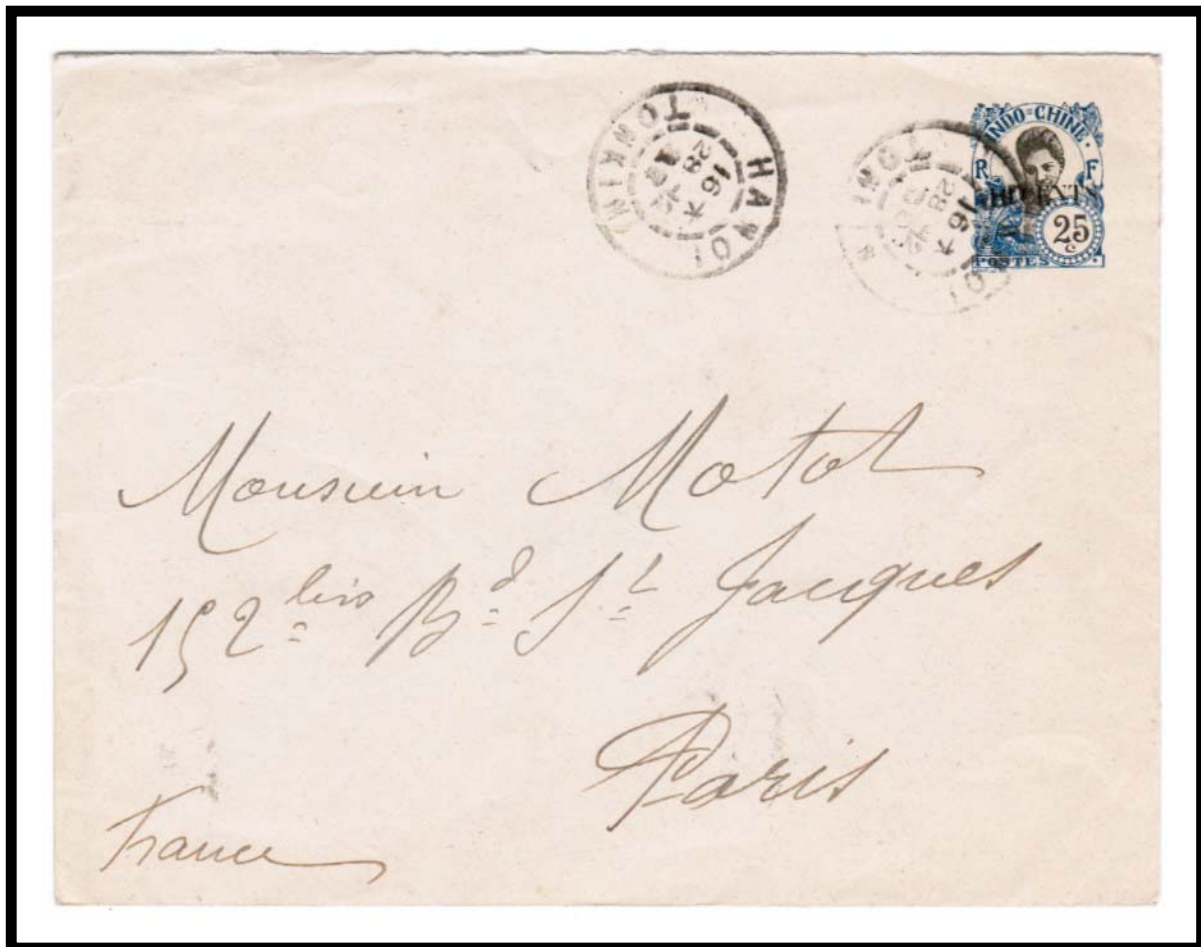 HANOI TONKIN
INDO=CHINE
R F
25
c
POSTES
Monsieur Motot
152 bis Bd St Jacques
Paris
France